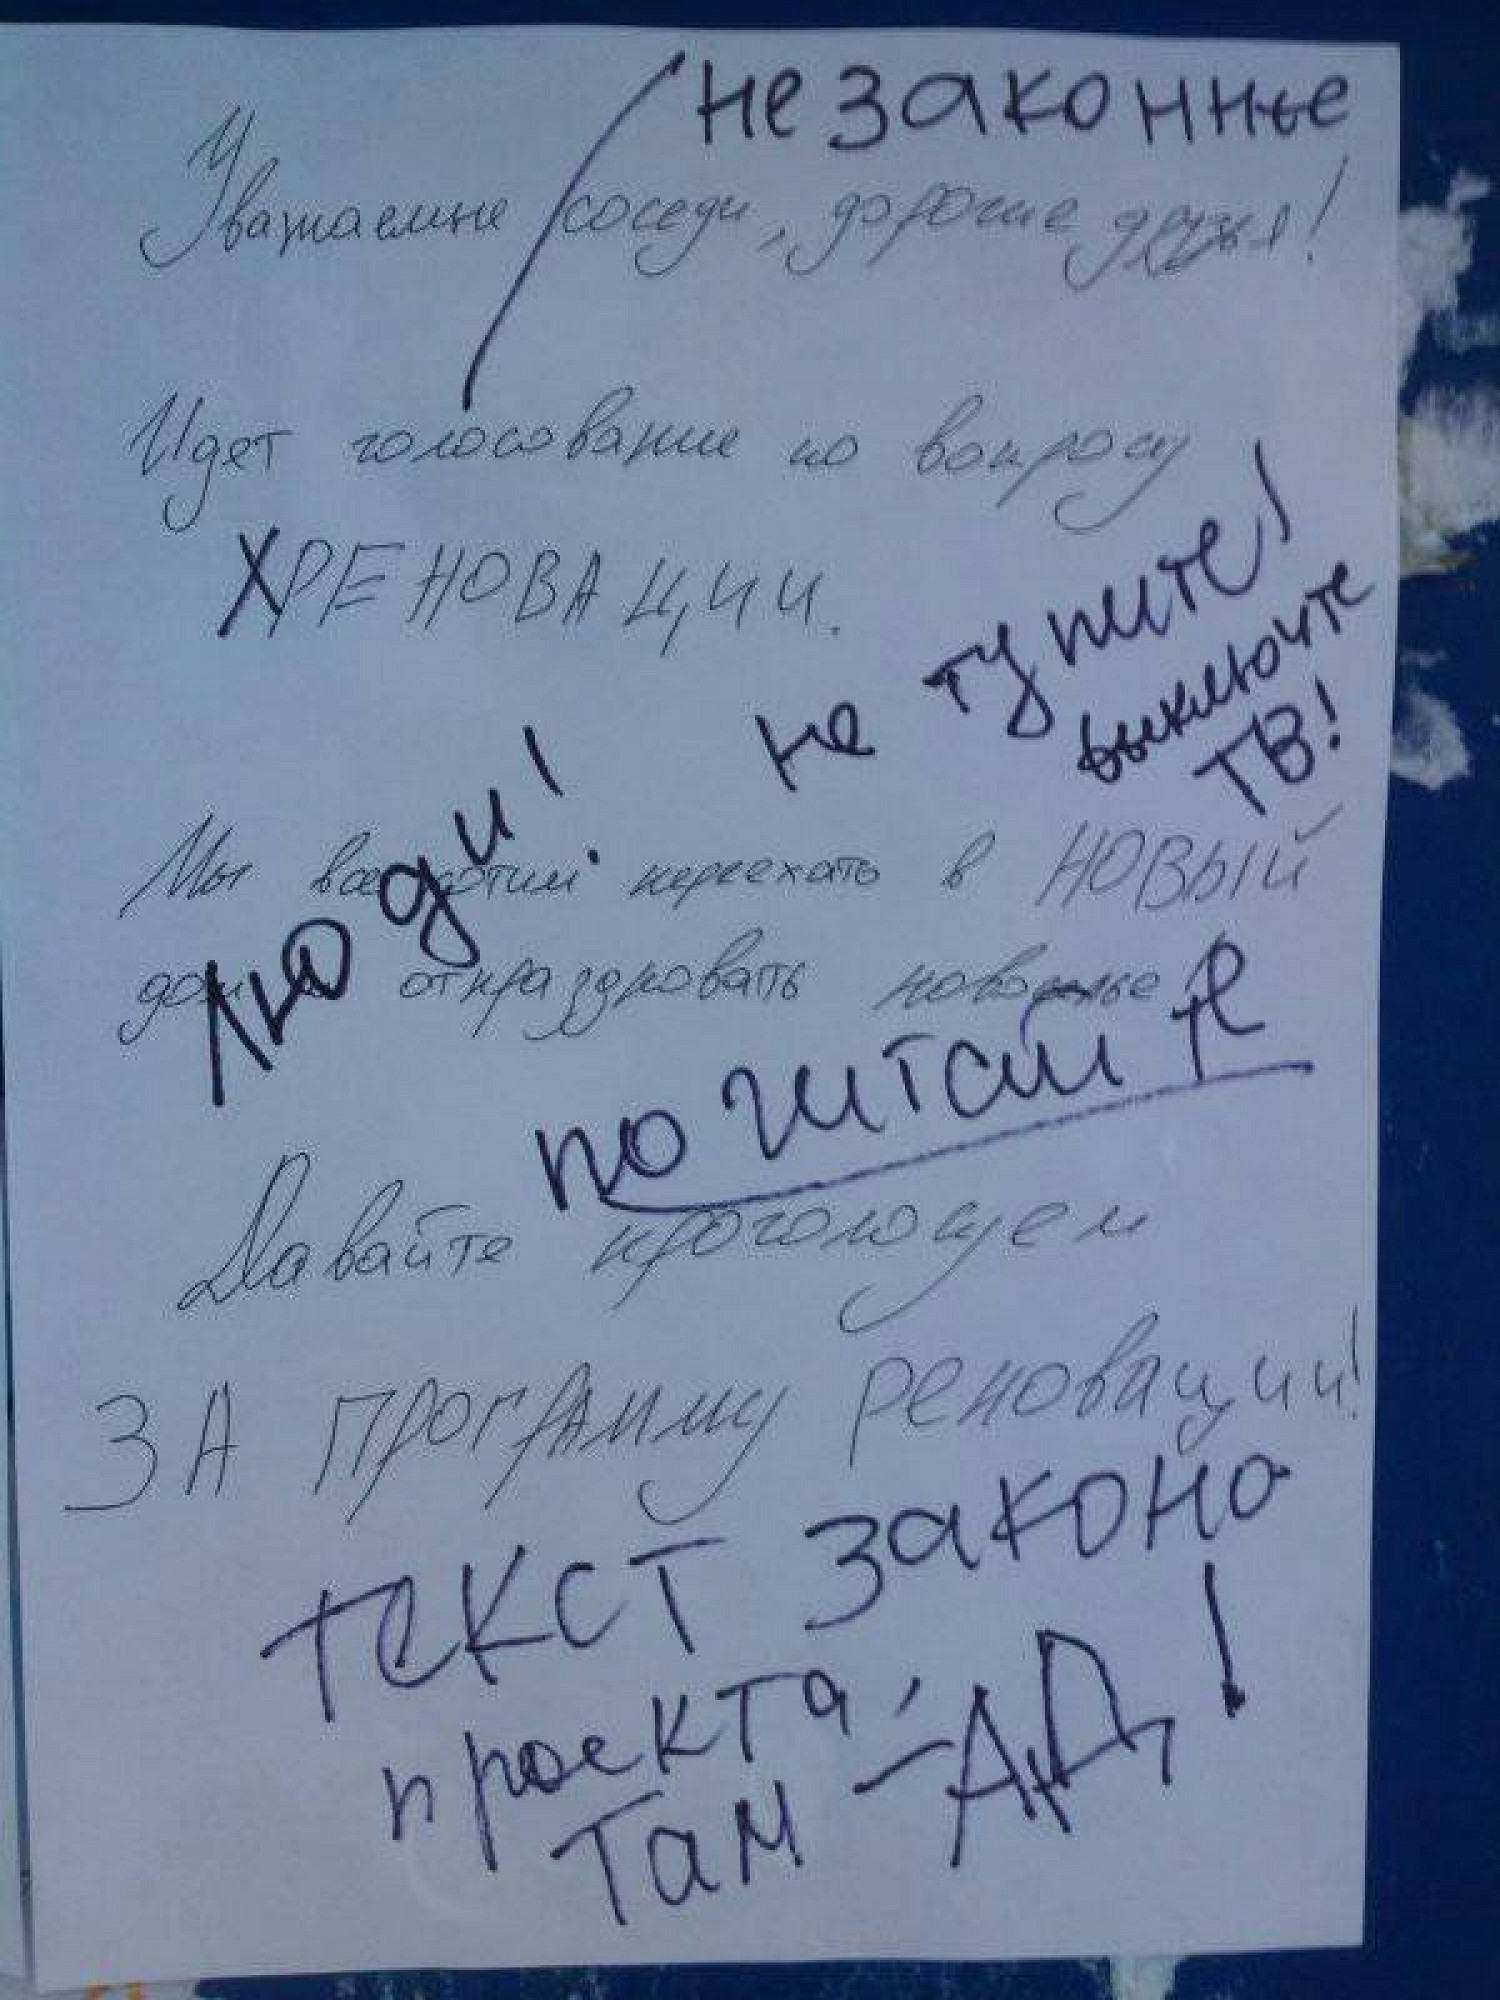 незаконные
Уважаемые соседи, дорогие друзья!
Идет голосование по вопросу
ХРЕНОВАЦИИ.
не тупите!
выключите
ТВ!
Люди!
Мы все хотим переехать в НОВЫЙ
дом отпраздновать новоселье
почитайте
Давайте проголосуем
ЗА ПРОГРАММУ реновации!
текст закона
проекта,
Там - АД!